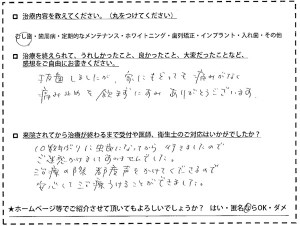 □ 治療内容を教えてください。(丸をつけてください)
むし歯・歯周病・定期的なメンテナンス・ホワイトニング・歯列矯正・インプラント・入れ歯・その他
□ 治療を終えられて、うれしかったこと、良かったこと、大変だったことなど、
感想をご自由にお書きください。
抜歯しましたが、家にもどっても痛みがなく
痛み止めを飲まずにすみありがとうございます。
□ 来院されてから治療が終わるまで受付や医師、衛生士のご対応はいかがでしたか?
10数年ぶりに虫歯になってから行きましたので
ご迷惑かけまして すみませんでした。
治療の際 都度声をかけてくださるので
安心して治療うけることができました。
★ホームページ等でご紹介させて頂いてもよろしいでしょうか? はい・匿名ならOK・ダメ